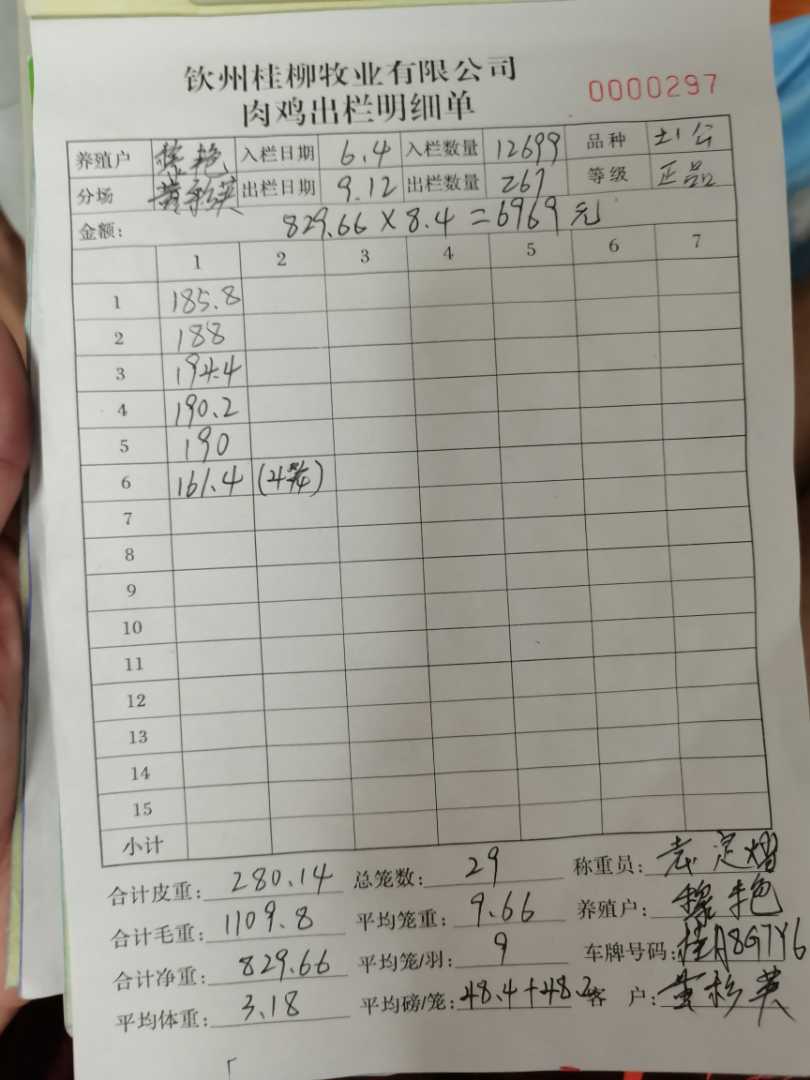 钦州桂柳牧业有限公司
肉鸡出栏明细单 0000297
养殖户 艳 入栏日期 6.4 入栏数量 12699 品种 土1公
分场 黄彩英 出栏日期 9.12 出栏数量 267 等级 正品
金额: 829.66×8.4=6969元
1 2 3 4 5 6 7
1 185.8
2 188
3 194.4
4 190.2
5 190
6 161.4 (4)
7
8
9
10
11
12
13
14
15
小计
合计皮重: 280.14 总笼数: 29 称重员: 定
合计毛重: 1109.8 平均笼重: 9.66 养殖户: 艳
合计净重: 829.66 平均笼/羽: 9 车牌号码: 桂A8G7Y6
平均体重: 3.18 平均磅/笼: 48.4+48.2 客 户: 黄彩英